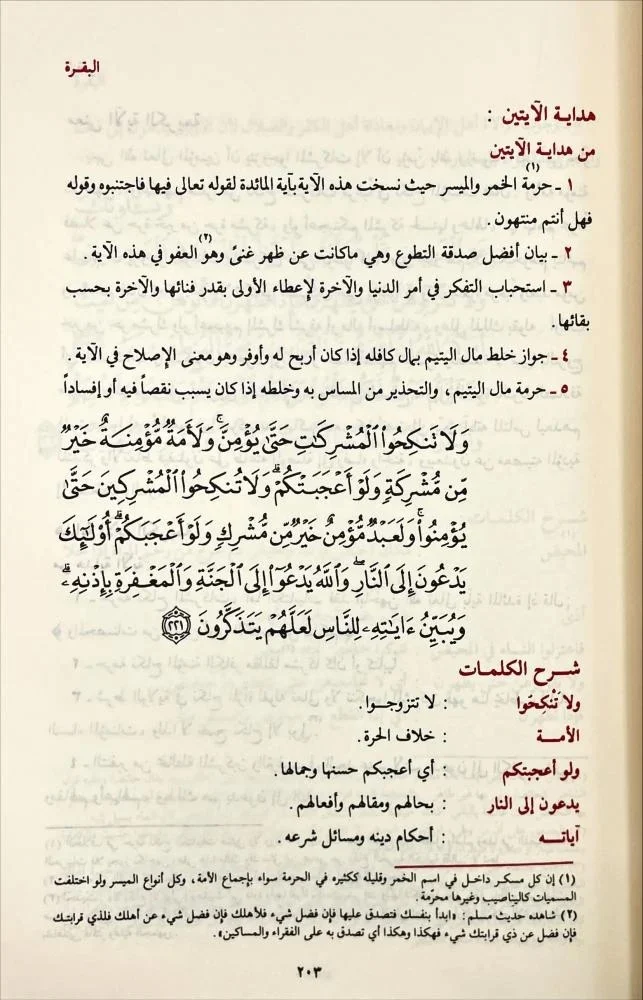 البقرة
هداية الآيتين :
من هداية الآيتين
١ - حرمة(١) الخمر والميسر حيث نسخت هذه الآية بآية المائدة لقوله تعالى فيها فاجتنبوه وقوله
فهل أنتم منتهون .
٢ - بيان أفضل صدقة التطوع وهي ماكانت عن ظهر غنىً وهو(٢) العفو في هذه الآية .
٣ - استحباب التفكر في أمر الدنيا والآخرة لإعطاء الأولى بقدر فنائها والآخرة بحسب
بقائها.
٤ - جواز خلط مال اليتيم بمال كافله إذا كان أربح له وأوفر وهو معنى الإصلاح في الآية .
٥ - حرمة مال اليتيم، والتحذير من المساس به وخلطه إذا كان يسبب نقصاً فيه أو إفساداً
وَلَا تَنكِحُوا۟ ٱلْمُشْرِكَٰتِ حَتَّىٰ يُؤْمِنَّ ۚ وَلَأَمَةٌ مُّؤْمِنَةٌ خَيْرٌ
مِّن مُّشْرِكَةٍ وَلَوْ أَعْجَبَتْكُمْ ۗ وَلَا تُنكِحُوا۟ ٱلْمُشْرِكِينَ حَتَّىٰ
يُؤْمِنُوا۟ ۚ وَلَعَبْدٌ مُّؤْمِنٌ خَيْرٌ مِّن مُّشْرِكٍ وَلَوْ أَعْجَبَكُمْ ۗ أُو۟لَٰٓئِكَ
يَدْعُونَ إِلَى ٱلنَّارِ ۖ وَٱللَّهُ يَدْعُوٓا۟ إِلَى ٱلْجَنَّةِ وَٱلْمَغْفِرَةِ بِإِذْنِهِۦ ۖ
وَيُبَيِّنُ ءَايَٰتِهِۦ لِلنَّاسِ لَعَلَّهُمْ يَتَذَكَّرُونَ ﴿٢٢١﴾
شرح الكلمات
ولا تَنْكحُوا : لا تتزوجوا.
الأمة : خلاف الحرة.
ولو أعجبتكم : أي أعجبكم حسنها وجمالها.
يدعون إلى النار : بحالهم ومقالهم وأفعالهم.
آياته : أحكام دينه ومسائل شرعه.
(١) إن كل مسكر داخل في اسم الخمر وقليله ككثيره في الحرمة سواء بإجماع الأمة، وكل أنواع الميسر ولو اختلفت
المسميات كاليناصيب وغيرها محرّمة.
(٢) شاهده حديث مسلم : «ابدأ بنفسك فتصدق عليها فإن فضل شيء فلأهلك فإن فضل شيء عن أهلك فلذي قرابتك
فإن فضل عن ذي قرابتك شيء فهكذا وهكذا أي تصدق به على الفقراء والمساكين».
٢٠٣